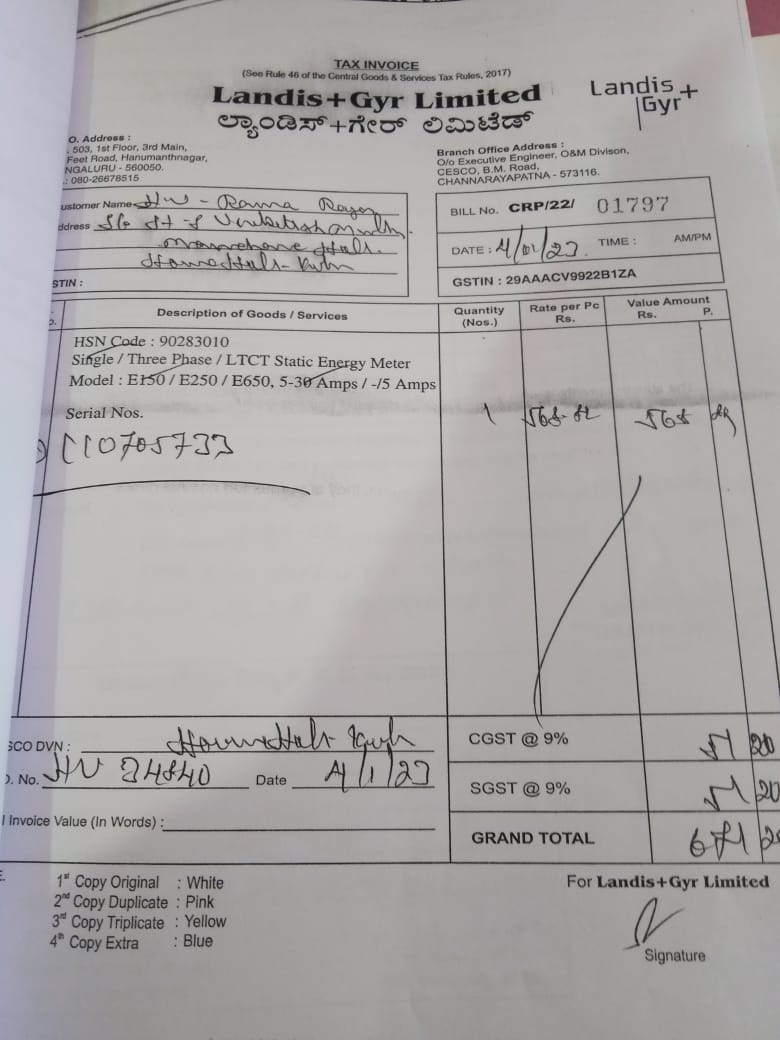 TAX INVOICE
(See Rule 46 of the Central Goods & Services Tax Rules, 2017)
Landis+Gyr Limited
ಲ್ಯಾಂಡಿಸ್+ಗೇರ್ ಲಿಮಿಟೆಡ್
Landis+
Gyr
O. Address :
503, 1st Floor, 3rd Main,
Feet Road, Hanumanthnagar,
NGALURU - 560050.
: 080-26678515
Branch Office Address :
O/o Executive Engineer, O&M Divison,
CESCO, B.M. Road,
CHANNARAYAPATNA - 573116.
ustomer Name
ddress
STIN :
BILL No. CRP/22/ 01797
DATE : 4/01/23 TIME : AM/PM
GSTIN : 29AAACV9922B1ZA
Description of Goods / Services
Quantity (Nos.)
Rate per Pc Rs.
Value Amount Rs. P.
HSN Code : 90283010
Single / Three Phase / LTCT Static Energy Meter
Model : E150 / E250 / E650, 5-30 Amps / -/5 Amps
Serial Nos. 1 568
C10705733
SCO DVN :
O. No. Date 4/1/23
l Invoice Value (In Words) :
CGST @ 9% 51 20
SGST @ 9% 51 20
GRAND TOTAL 671
1st Copy Original : White
2nd Copy Duplicate : Pink
3rd Copy Triplicate : Yellow
4th Copy Extra : Blue
For Landis+Gyr Limited
Signature